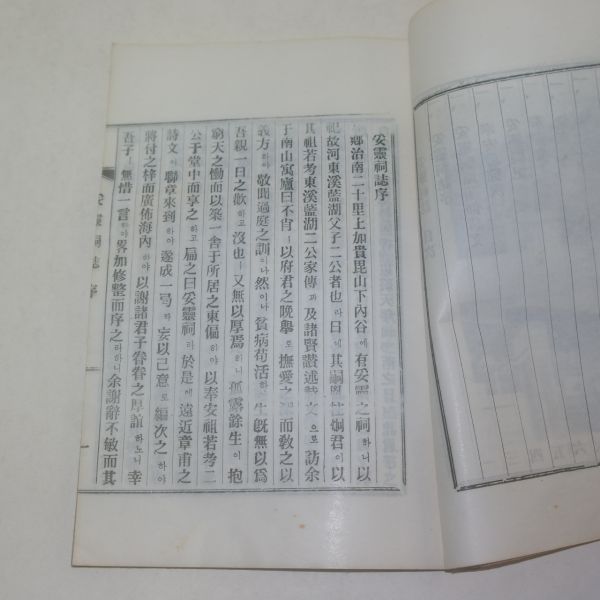 妥靈祠誌序
鄕治南二十里上加貴毘山下內谷에有妥靈之祠하니以
祀故河東溪藍湖父子二公者也라日에其嗣 炯君이以
其祖若考東溪藍湖二公家傳과及諸賢讚述 文으로訪余
于南山寓廬曰不肖ㅣ以府君之晩擧로撫愛之 而敎之以
義方하야敬聞過庭之訓이나然이나貧病苟活하 生旣無以爲
吾親一日之歡하고沒也ㅣ又無以厚焉하니孤露餘生이抱
窮天之慟而以築一舍于所居之東偏하야以奉安祖若考二
公于堂中而享之하고扁之曰妥靈祠라於是에遠近章甫之
詩文이聯章來到하야遂成一弓라妄以己意로編次之하야
將付之梓而廣佈海內하야以謝諸君子眷眷之厚誼하노니幸
吾子ㅣ無惜一言하야畧加修整而序之라하니余謝辭不敏而其
妥靈祠誌 序
一